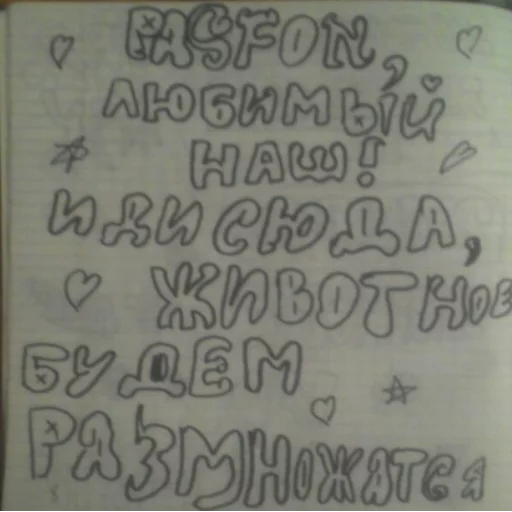 PASFON,
ЛЮБИМЫЙ
НАШ!
ИДИ СЮДА,
ЖИВОТНОЕ
БУДЕМ
РАЗМНОЖАТСЯ